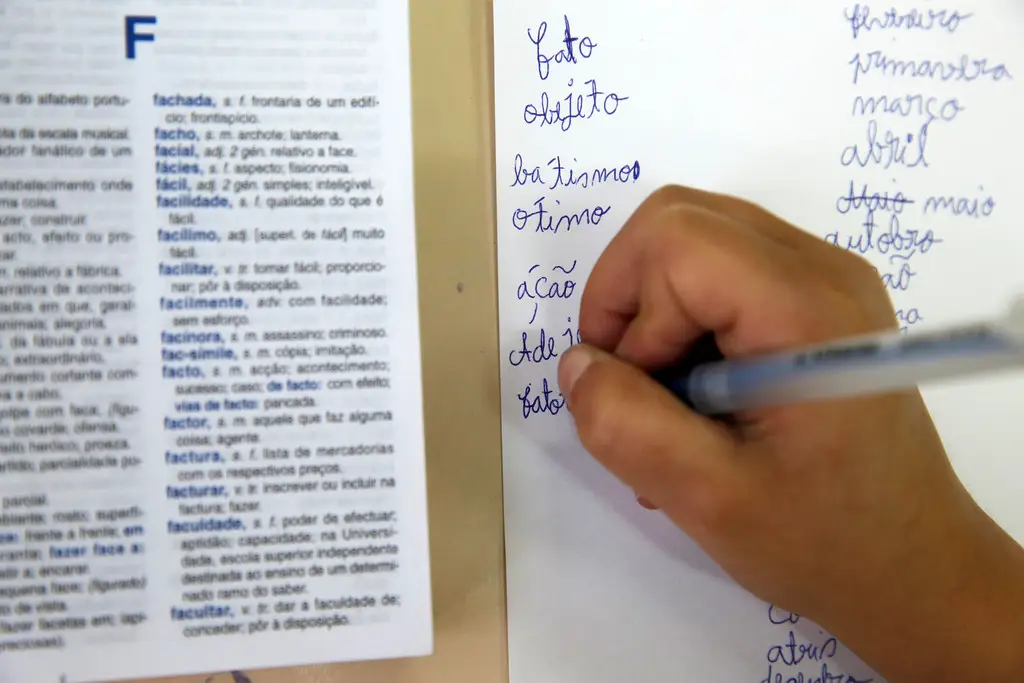 F
do alfabeto portu-
da escala musical.
fanático de um
onde
uma coisa.
construir.
acto, efeito ou pro-
relativo a fábrica.
de aconteci-
em que, geral-
alegoria.
da fábula ou a ela
extraordinário.
cortante com-
a cabo.
com faca; (figu-
covarde; ofensa.
heróico; proeza.
parcialidade po-
parcial.
rosto; superfí-
frente a frente; em
fazer face a:
a; encarar.
face; (figurado)
de vista.
fazer facetas em; lapi-
fachada, s. f. frontaria de um edifí-
cio; frontispício.
facho, s. m. archote; lanterna.
facial, adj. 2 gén. relativo a face.
fácies, s. f. aspecto; fisionomia.
fácil, adj. 2 gén. simples; inteligível.
facilidade, s. f. qualidade do que é
fácil.
facílimo, adj. [superl. de fácil] muito
fácil.
facilitar, v. tr. tornar fácil; proporcio-
nar; pôr à disposição.
facilmente, adv. com facilidade;
sem esforço.
facínora, s. m. assassino; criminoso.
fac-símile, s. m. cópia; imitação.
facto, s. m. acção; acontecimento;
sucesso; caso; de facto: com efeito;
vias de facto: pancada.
factor, s. m. aquele que faz alguma
coisa; agente.
factura, s. f. lista de mercadorias
com os respectivos preços.
facturar, v. tr. inscrever ou incluir na
factura; fazer.
faculdade, s. f. poder de efectuar;
aptidão; capacidade; na Universi-
dade, escola superior independente
destinada ao ensino de um determi-
nado ramo do saber.
facultar, v. tr. dar a faculdade de;
conceder; pôr à disposição.
fato
objeto
batismo
ótimo
áção
Adej
fato
fevereiro
primavera
março
abril
Maio maio
autobro
ão
na
co
atris
dezembro